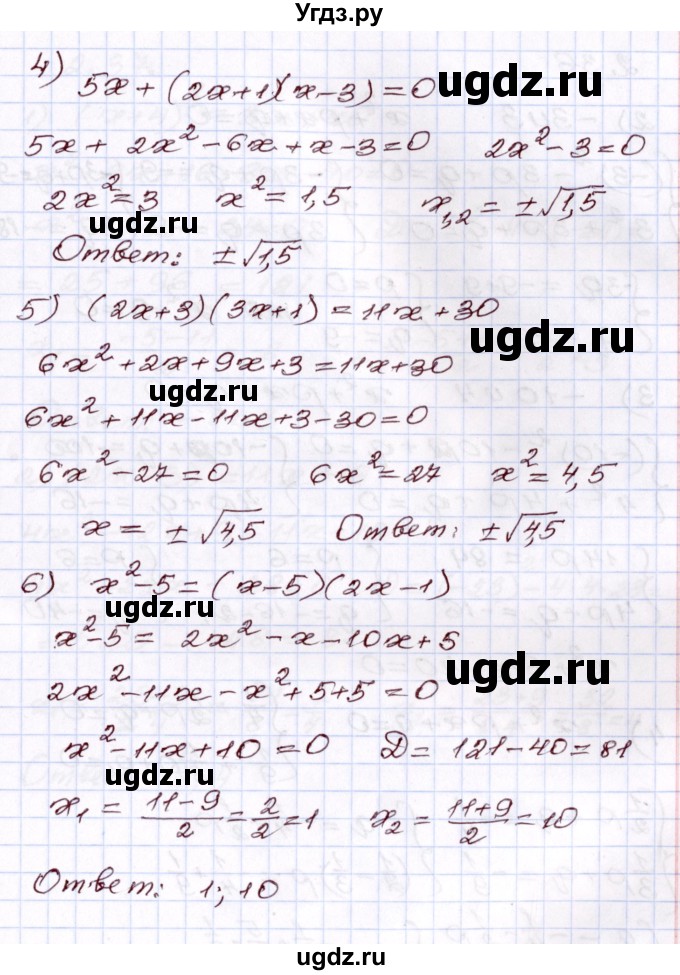 Угдз.ру
4) 5x + (2x+1)(x-3) = 0
ugdz.ru
5x + 2x² - 6x + x - 3 = 0 2x² - 3 = 0
ugdz.ru
2x² = 3 x² = 1,5 x₁,₂ = ±√1,5
ugdz.ru
Ответ: ±√1,5
5) (2x+3)(3x+1) = 11x + 30
ugdz.ru
6x² + 2x + 9x + 3 = 11x + 30
ugdz.ru
6x² + 11x - 11x + 3 - 30 = 0
6x² - 27 = 0 6x² = 27 x² = 4,5
x = ±√4,5 Ответ: ±√4,5
6) x² - 5 = (x-5)(2x-1)
ugdz.ru
x² - 5 = 2x² - x - 10x + 5
ugdz.ru
2x² - 11x - x² + 5 + 5 = 0
x² - 11x + 10 = 0 D = 121 - 40 = 81
ugdz.ru
x₁ = (11-9)/2 = 2/2 = 1 x₂ = (11+9)/2 = 10
Ответ: 1; 10
ugdz.ru